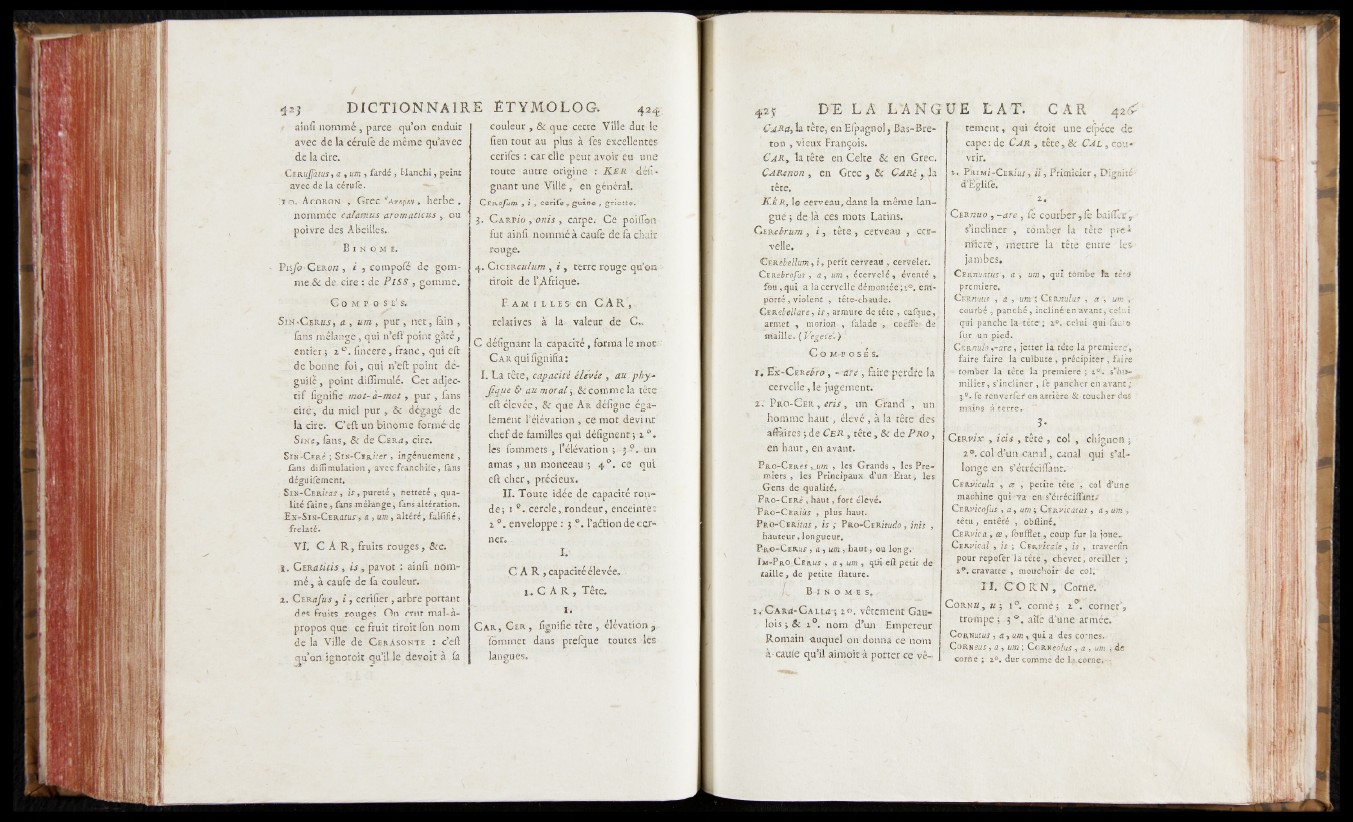 423 DICTIONNAIRE ÉTYMOLOG. 424
ainſi nommé, parce qu'on enduit
avec de la céruſe de même qu'avec
de la cire.
CERuſſatus, a, um, fardé, blanchi, peint
avec de la céruſe.
10. ACORON, Grec Ἄκορον, herbe,
nommée calamus aromaticus, ou
poivre des Abeilles.
BINOME.
Piſſo-CERON, i, compoſé de gom-
me & de cire : de PISS, gomme.
COMPOSÉS.
SIN-CERus, a, um, pur, net, ſain,
ſans mélange, qui n'eſt point gâté,
entier ; 2°. ſincere, franc, qui eſt
de bonne foi, qui n'eſt point dé-
guiſé, point diſſimulé. Cet adjec-
tif ſignifie mot-à-mot, pur, ſans
cire, du miel pur, & dégagé de
la cire. C'eſt un binome formé de
SINe, ſans, & de CERa, cire.
SIN-CERè ; SIN-CERiter, ingénuement,
ſans diſſimulation, avec franchiſe, ſans
déguiſement.
SIN-CERitas, is, pureté, netteté, qua-
lité ſaine, ſans mélange, ſans altération.
EX-SIN-CERatus, a, um, altéré, falſifié,
frelaté.
VI. CAR, fruits rouges, &c.
1. CERatitis, is, pavot : ainſi nom-
mé, à cauſe de ſa couleur.
2. CERaſus, i, ceriſier, arbre portant
des fruits rouges. On crut mal-à-
propos que ce fruit tiroit ſon nom
de la Ville de CERASONTE : c'eſt
qu'on ignoroit qu'il le devoit à ſa
couleur, & que cette Ville dut le
ſien tout au plus à ſes excellentes
ceriſes : car elle peut avoir eu une
toute autre origine : KER déſi-
gnant une Ville, en général.
CERaſum, i, ceriſe, guine, griotte.
3. CARPio, onis, carpe. Ce poiſſon
fut ainſi nommé à cauſe de ſa chair
rouge.
4. CICERculum, i, terre rouge qu'on
tiroit de l'Afrique.
FAMILLES en CAR,
relatives à la valeur de C.
C déſignant la capacité, forma le mot
CAR qui ſignifia :
I. La tête, capacité élevée, au phy-
ſique & au moral, & comme la tête
eſt élevée, & que AR déſigne éga-
lement l'élévation, ce mot devint
chef de familles qui déſignent ; 2°.
les ſommets, l'élévation ; 3°. un
amas, un monceau ; 4°. ce qui
eſt cher, précieux.
II. Toute idée de capacité ron-
de ; 1°. cercle, rondeur, enceinte :
2°. enveloppe : 3°. l'action de cer-
ner.
I.
CAR, capacité élevée.
1. CAR, Tête.
1.
CAR, CER, ſignifie tête, élévation,
ſommet dans preſque toutes les
langues.
425 DE LA LANGUE LAT. CAR 426
CARa, la tête, en Eſpagnol, Bas-Bre-
ton, vieux François.
CAR, la tête en Celte & en Grec.
CARenon, en Grec, & CARé, la
tête.
KER, le cerveau, dans la même lan-
gue ; de là ces mots Latins.
CERebrum, i, tête, cerveau, cer-
velle.
CERebellum, i, petit cerveau, cervelet.
CERebroſus, a, um, écervelé, éventé,
fou, qui a la cervelle démontée ; 2°. em-
porté, violent, tête-chaude.
CERebellare, is, armure de tête, caſque,
armet, morion, ſalade, coëffe de
maille. (Vegece.)
COMPOSÉS.
1. Ex-CERebro, -are, faire perdre la
cervelle, le jugement.
2. PRO-CER, eris, un Grand, un
homme haut, élevé, à la tête des
affaires ; de CER, tête, & de PRO,
en haut, en avant.
PRO-CERes, um, les Grands, les Pre-
miers, les Principaux d'un Etat, les
Gens de qualité.
PRO-CERè, haut, fort élevé.
PRO-CERiùs, plus haut.
PRO-CERitas, is ; PRO-CERitudo, inis,
hauteur, longueur.
PRO-CERus, a, um, haut, ou long.
IM-PRO-CERus, a, um, qui eſt petit de
taille, de petite ſtature.
BINOMES.
1. CARa-CALLa ; 1°. vêtement Gau-
lois ; & 2°. nom d'un Empereur
Romain auquel on donna ce nom
à cauſe qu'il aimoit à porter ce vê-
tement, qui étoit une eſpéce de
cape : de CAR, tête, & CAL, cou-
vrir.
2. PRIMI-CERius, ii, Primicier, Dignité
d'Egliſe.
2.
CERnuo, -are, ſe courber, ſe baiſſer,
s'incliner, tomber la tête pre-
miere, mettre la tête entre les
jambes.
CERnuatus, a, um, qui tombe la tête
premiere.
CERnuus, a, um ; CERnulus, a, um,
courbé, panché, incliné en avant, celui
qui panche la tête ; 2°. celui qui ſaute
ſur un pied.
CERnulo, -are, jetter la tête la premiere,
faire faire la culbute, précipiter, faire
tomber la tête la premiere ; 2°. s'hu-
milier, s'incliner, ſe pancher en avant ;
3°. ſe renverſer en arriere & toucher des
mains à terre.
3.
CERvix, icis, tête, col, chignon ;
2°. col d'un canal, canal qui s'al-
longe en s'étréciſſant.
CERvicula, æ, petite tête, col d'une
machine qui va en s'étréciſſant.
CERvicoſus, a, um ; CERvicatus, a, um,
têtu, entêté, obſtiné.
CERvica, æ, ſoufflet, coup ſur la joue.
CERvical, is ; CERvicale, is, traverſin
pour repoſer la tête, chevet, oreiller ;
2°. cravatte, mouchoir de col.
II. CORN, Corne.
CORNu, u ; 1°. corne ; 2°. cornet,
trompe ; 3°. aîle d'une armée.
CORNutus, a, um, qui a des cornes.
CORNeus, a, um ; CORNeolus, a, um, de
corne ; 2°. dur comme de la corne.